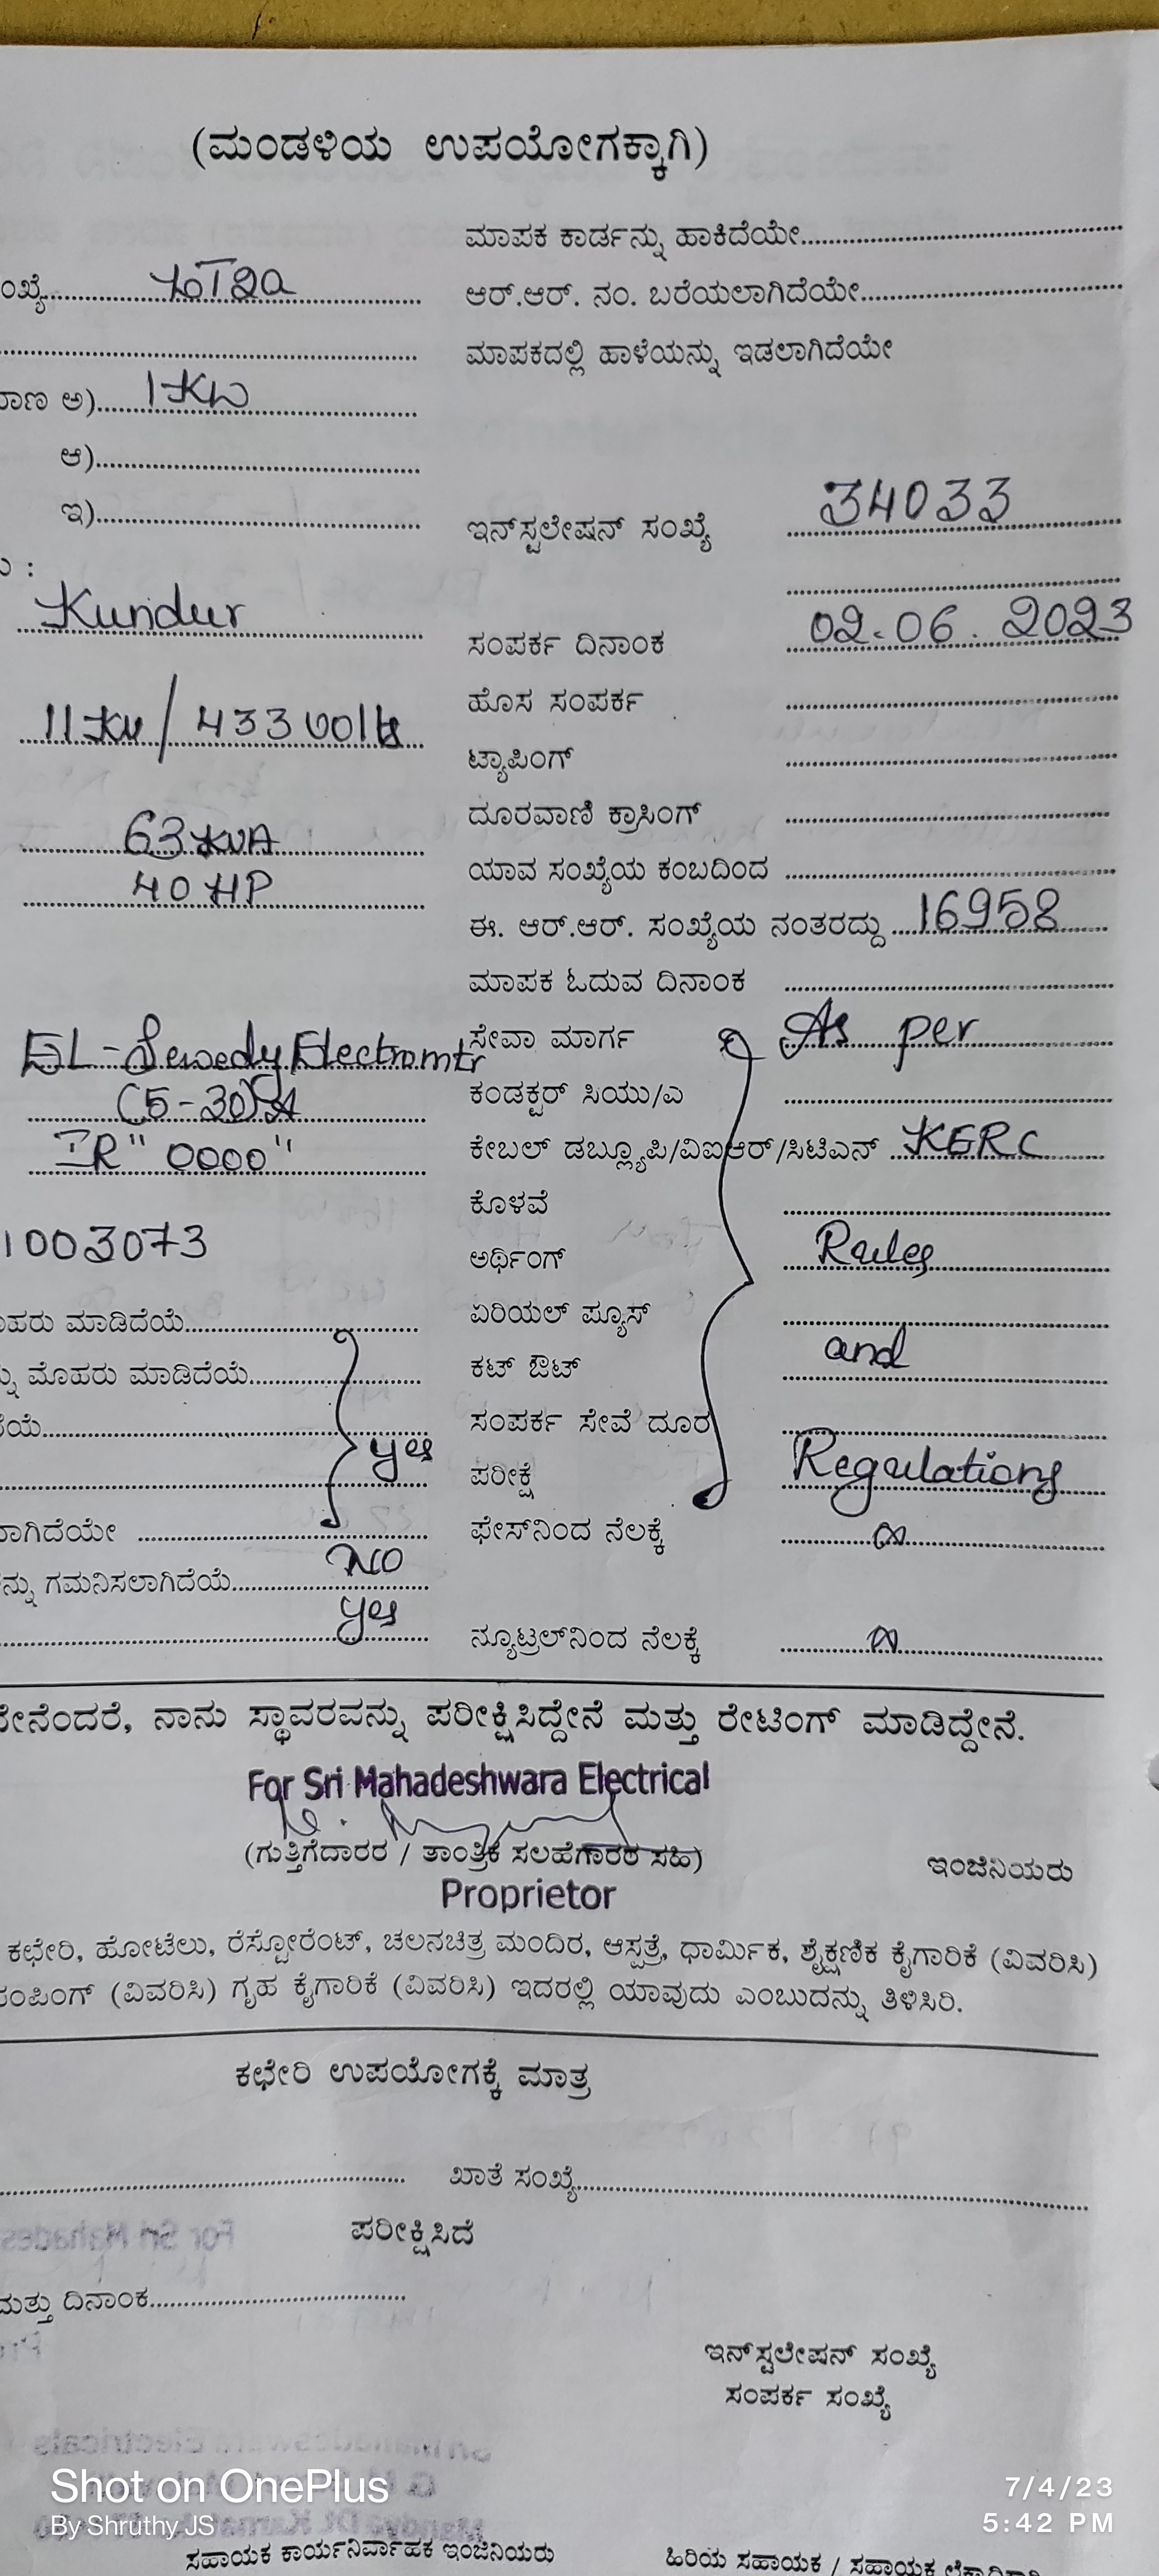 (ಮಂಡಳಿಯ ಉಪಯೋಗಕ್ಕಾಗಿ)
ಮಾಪಕ ಕಾರ್ಡನ್ನು ಹಾಕಿದೆಯೇ
ಂಖ್ಯೆ
ಆರ್.ಆರ್. ನಂ. ಬರೆಯಲಾಗಿದೆಯೇ
ಮಾಪಕದಲ್ಲಿ ಹಾಳೆಯನ್ನು ಇಡಲಾಗಿದೆಯೇ
ಮಾಣ ಅ) 1 KW
ಆ)
ಇ)
ಇನ್‌ಸ್ಟಲೇಷನ್ ಸಂಖ್ಯೆ 34033
Kundur
ಸಂಪರ್ಕ ದಿನಾಂಕ 02.06.2023
11 KV / 433 volts
ಹೊಸ ಸಂಪರ್ಕ
ಟ್ಯಾಪಿಂಗ್
63 KVA
ದೂರವಾಣಿ ಕ್ರಾಸಿಂಗ್
40 HP
ಯಾವ ಸಂಖ್ಯೆಯ ಕಂಬದಿಂದ
ಈ. ಆರ್.ಆರ್. ಸಂಖ್ಯೆಯ ನಂತರದ್ದು 16958
ಮಾಪಕ ಓದುವ ದಿನಾಂಕ
EL-Sewedy Electromtr
ಸೇವಾ ಮಾರ್ಗ As per
(5-30)A
ಕಂಡಕ್ಟರ್ ಸಿಯು/ಎ
IR "0000"
ಕೇಬಲ್ ಡಬ್ಲ್ಯೂಪಿ/ವಿಐಆರ್/ಸಿಟಿಎನ್ KERC
ಕೊಳವೆ
1003073
ಅರ್ಥಿಂಗ್ Rules
ೊಹರು ಮಾಡಿದೆಯೆ
ಏರಿಯಲ್ ಪ್ಯೂಸ್
ನ್ನು ಮೊಹರು ಮಾಡಿದೆಯೆ
ಕಟ್ ಔಟ್ and
ೆಯೆ
ಸಂಪರ್ಕ ಸೇವೆ ದೂರ
yes
ಪರೀಕ್ಷೆ Regulations
ಾಗಿದೆಯೇ
ಫೇಸ್‌ನಿಂದ ನೆಲಕ್ಕೆ ∞
ನ್ನು ಗಮನಿಸಲಾಗಿದೆಯೆ NO
yes
ನ್ಯೂಟ್ರಲ್‌ನಿಂದ ನೆಲಕ್ಕೆ ∞
ೇನೆಂದರೆ, ನಾನು ಸ್ಥಾವರವನ್ನು ಪರೀಕ್ಷಿಸಿದ್ದೇನೆ ಮತ್ತು ರೇಟಿಂಗ್ ಮಾಡಿದ್ದೇನೆ.
For Sri Mahadeshwara Electrical
(ಗುತ್ತಿಗೆದಾರರ / ತಾಂತ್ರಿಕ ಸಲಹೆಗಾರರ ಸಹಿ)
ಇಂಜಿನಿಯರು
Proprietor
ಕಛೇರಿ, ಹೋಟೆಲು, ರೆಸ್ಟೋರೆಂಟ್, ಚಲನಚಿತ್ರ ಮಂದಿರ, ಆಸ್ಪತ್ರೆ, ಧಾರ್ಮಿಕ, ಶೈಕ್ಷಣಿಕ ಕೈಗಾರಿಕೆ (ವಿವರಿಸಿ)
ಂಪಿಂಗ್ (ವಿವರಿಸಿ) ಗೃಹ ಕೈಗಾರಿಕೆ (ವಿವರಿಸಿ) ಇದರಲ್ಲಿ ಯಾವುದು ಎಂಬುದನ್ನು ತಿಳಿಸಿರಿ.
ಕಛೇರಿ ಉಪಯೋಗಕ್ಕೆ ಮಾತ್ರ
ಖಾತೆ ಸಂಖ್ಯೆ
ಪರೀಕ್ಷಿಸಿದೆ
ಮತ್ತು ದಿನಾಂಕ
ಇನ್‌ಸ್ಟಲೇಷನ್ ಸಂಖ್ಯೆ
ಸಂಪರ್ಕ ಸಂಖ್ಯೆ
Shot on OnePlus
By Shruthy JS
7/4/23
5:42 PM
ಸಹಾಯಕ ಕಾರ್ಯನಿರ್ವಾಹಕ ಇಂಜಿನಿಯರು
ಹಿರಿಯ ಸಹಾಯಕ / ಸಹಾಯಕ